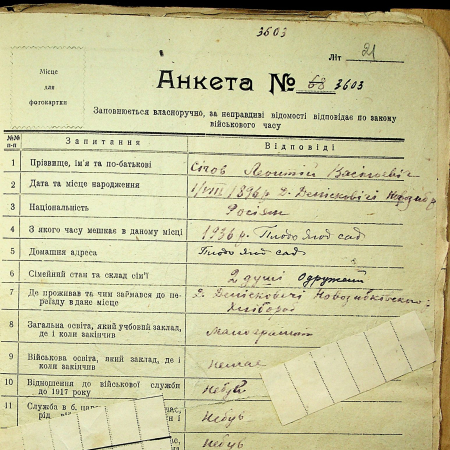 3603
Літ 21
Місце
для
фотокартки
Анкета № 68 3603
Заповнюється власноручно, за неправдиві відомості відповідає по закону
військового часу
№№
п-п
Запитання
Відповіді
1 Прізвище, ім'я та по-батькові
Сігов Леонтій Васільевіч
2 Дата та місце народження
1/VIII 1896 р. Д. Демісковічі
3 Національність
Росіян
4 З якого часу мешкає в даному місці
1936 р. Плодо Ягод сад
5 Домашня адреса
Плодо Ягод сад
6 Сімейний стан та склад сім'ї
2 душі Одружений
7 Де проживав та чим займався до пе-
реїзду в дане місце
Д. Деміскович Новозибківского
Хлібороб
8 Загальна освіта, який учбовий заклад,
де і коли закінчив
Малограмот
9 Військова освіта, який заклад, де і
коли закінчив
немае
10 Відношення до військової служби
до 1917 року
Небув
11 Служба в б.
рід
Небув
Небув